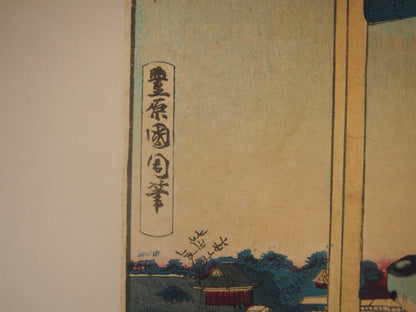 豊原國周筆